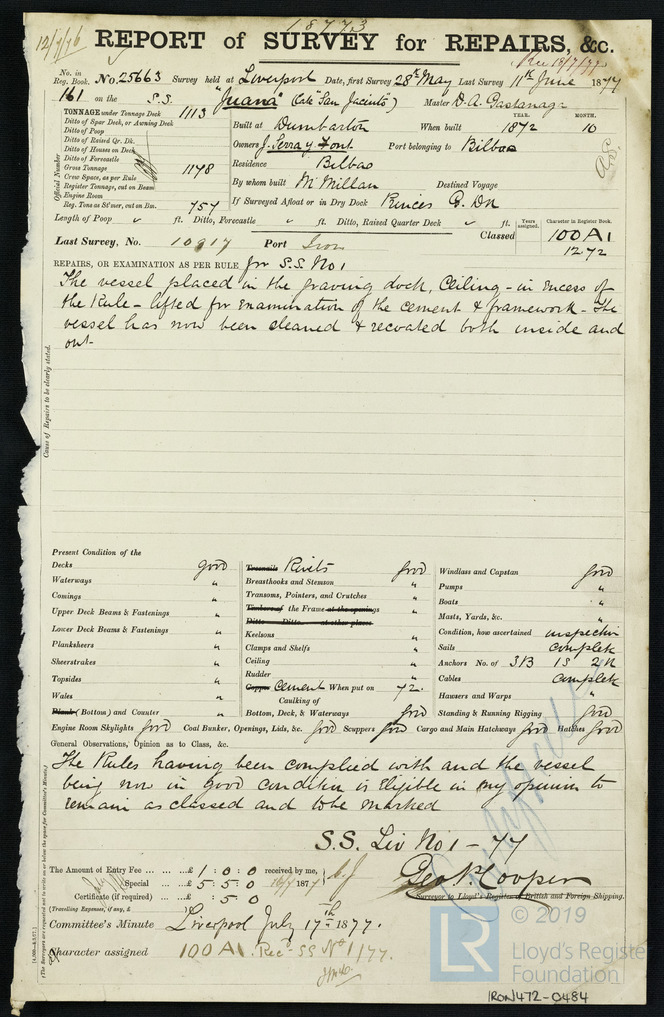 18773
12/7/76 REPORT of SURVEY for REPAIRS, &c.
Rec 18/7/77
No. in Reg. Book. No. 25663 Survey held at Liverpool Date, first Survey 28th May Last Survey 11th June 1877
161 on the S.S. "Juana" (late "San Jacinto") Master D. A. Gastanaga
TONNAGE under Tonnage Deck 1113
Ditto of Spar Deck, or Awning Deck
Ditto of Poop
Ditto of Raised Qr. Dk.
Ditto of Houses on Deck
Ditto of Forecastle
Gross Tonnage 1178
Crew Space, as per Rule
Register Tonnage, cut on Beam
Engine Room
Reg. Tons as St'mer, cut on Bm. 757
Official Number
YEAR. MONTH.
Built at Dumbarton When built 1872 10
Owners J. Serra y Font Port belonging to Bilbao
Residence Bilbao
By whom built McMillan Destined Voyage
If Surveyed Afloat or in Dry Dock Princes G. Dk
Length of Poop " ft. Ditto, Forecastle " ft. Ditto, Raised Quarter Deck " ft.
Years assigned. Character in Register Book.
Classed 100 A1
12 72
Last Survey, No. 10917 Port Iron
REPAIRS, OR EXAMINATION AS PER RULE, for S.S. No 1
The vessel placed in the graving dock, Ceiling - in excess of
the Rule - lifted for examination of the cement & framework - The
vessel has now been cleaned & recoated both inside and
out-
Cause of Repairs to be clearly stated.
Present Condition of the
Decks good
Waterways "
Comings "
Upper Deck Beams & Fastenings "
Lower Deck Beams & Fastenings "
Planksheers "
Sheerstrakes "
Topsides "
Wales "
Plank (Bottom) and Counter "
Treenails Rivets good
Breasthooks and Stemson "
Transoms, Pointers, and Crutches "
Timbers of the Frame at the openings "
Ditto Ditto at other places "
Keelsons "
Clamps and Shelfs "
Ceiling "
Rudder "
Copper Cement When put on 72.
Caulking of
Bottom, Deck, & Waterways good
Windlass and Capstan good
Pumps "
Boats "
Masts, Yards, &c. "
Condition, how ascertained inspection
Sails complete
Anchors No. of 3B 1S 2K
Cables complete
Hawsers and Warps "
Standing & Running Rigging good
Engine Room Skylights good Coal Bunker, Openings, Lids, &c. good Scuppers good Cargo and Main Hatchways good Hatches good
General Observations, Opinion as to Class, &c.
The Rules having been complied with and the vessel
being now in good condition is eligible in my opinion to
remain as classed and to be marked
S.S. Liv No 1 - 77
The Amount of Entry Fee ... ... £ 1 : 0 : 0 received by me,
Special ... £ 5 : 5 : 0 16/7 1877
Certificate (if required) ... £ : 5 : 0
(Travelling Expenses, if any, £ )
Geo. N. Cooper
Surveyor to Lloyd's Register of British and Foreign Shipping.
Committee's Minute Liverpool July 17th 1877.
Character assigned 100 A1. Rec- SS No 1/77.
© 2019
LR Lloyd's Register Foundation
IRON472-0484